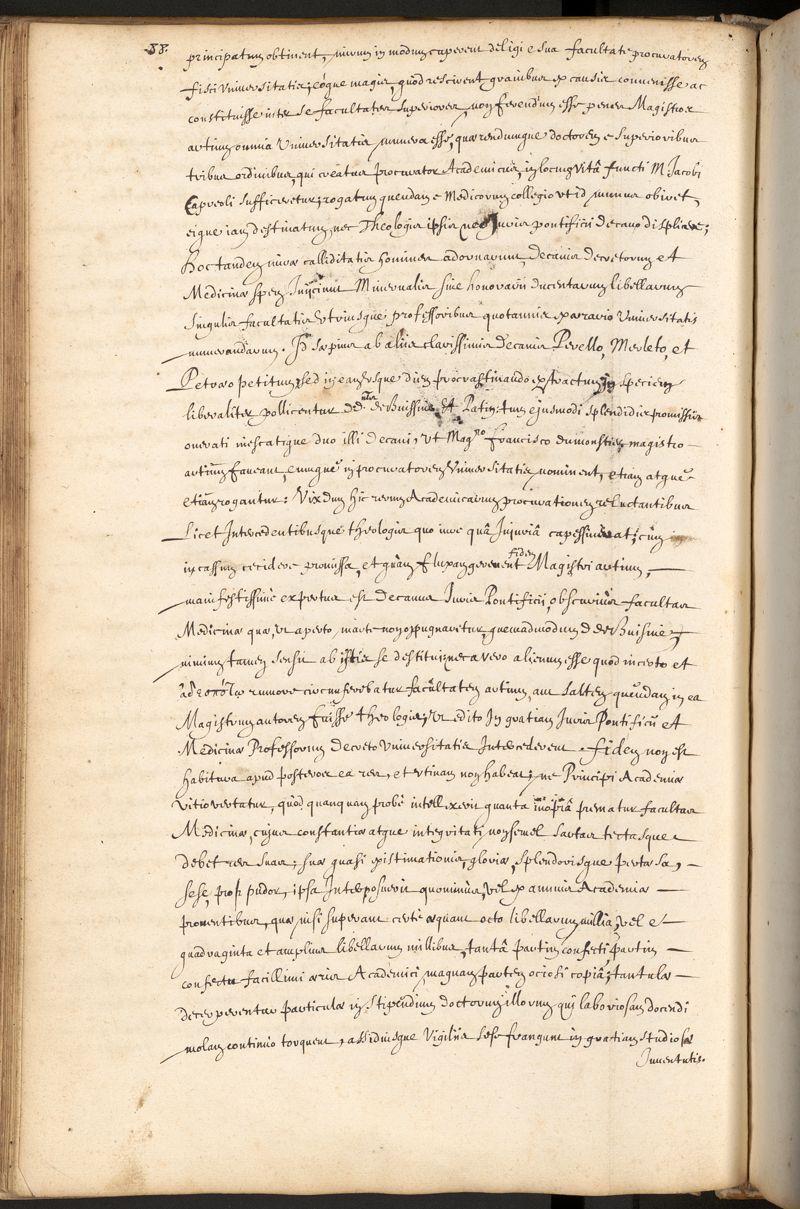 58.
principatum obtinent, mirum in modum cuperent deligi e sua facultate procuratorem
fisci Universitatis; eóque magis, quòd rescirent gravibus ex causis convenisse ac
constituisse inter se facultates superiores, non ferendum esse penes Magistros
artium omnia Universitatis munera esse, quærendumque doctorem e superioribus
tribus ordinibus, qui creatus procurator Academicus, in locum vitâ functi M. Jacobi
Capreoli sufficeretur; rogatum quendam e Medicorum collegio ut id munus obiret
eique iam destinatum, nec Theologis ipsis nec Juris pontificii decano displicere;
hoc tandem miræ calliditatis homines adornarunt, decanis decretorum et
Medicinæ spem Injiciunt Minervalis sive honorarii ducentarum libellarum
singulis facultatis utriusque professoribus quotannis ex ærario Universitatis
numerandarum. Id sæpius ab aliis clarissimis decanis Perello, Merleto, et
Petræo petitum, sed in eam usque diem procrastinando extractum In speciem
liberaliter pollicentur DD. nter de Buissine et Patin: tum ejusmodi splendidis promissis
onerati inescatique duo illi decani, ut Magro Francisco dumonstier magistro
artium faveant, eumque in procuratorem Universitatis nominent, etiam atque
etiam rogantur: Vix dum hic rerum Academicarum procurationem reluctantibus
Licet Intercedentibusque theologis quo iure quâ Injuriâ capessiverat, cùm
in cassum cecidere promissa, et quàm fluxam gererent fidem Magistri artium,
manifestissime expertus est decanus Juris Pontificii, obscurius facultas
Medicinæ quæ, ut aperto marte non oppugnaretur, quemadmodum D. de Buisine,
nimium tamen sensit ab istis se destitui; nec a vero alienum esse quod incerto et
ἀδεσπότῳ rumore circumferebatur facultatem artium, aut saltem quendam in ea
Magistrum autorem fuisse theologis, ut edito In gratiam Juris Pontificii et
Medicinæ Professorum decreto Universitatis Intercederent. fidem non est
habitura apud posteros ea res, et utinam non habeat; ne Principi Academiæ
vitio vertatur, quòd quanquam probè intellexerit quanta inopiâ prematur facultas
Medicinæ, cujus constantiæ atque integritati non semel sartas tectasque
debet res suas, suæ quasi existimationis, gloriæ, splendorisque pertæsa,
sese, proh pudor, ipsa Interposuerit quominus, vel ex annuis Academiæ
proventibus, quæ nisi superant certè æquant octo libellarum millia, vel è
quadraginta et amplius libellarum millibus, tantâ partim confecti, partim
confectu facillimi æris Academici, magnam partem ociosi copiâ; tantula
decerperentur particula in stipendium doctorum illorum qui laboriosam docendi
molam continuò torquent, assiduisque vigiliis sese frangunt in gratiam studiosæ
Juventutis.